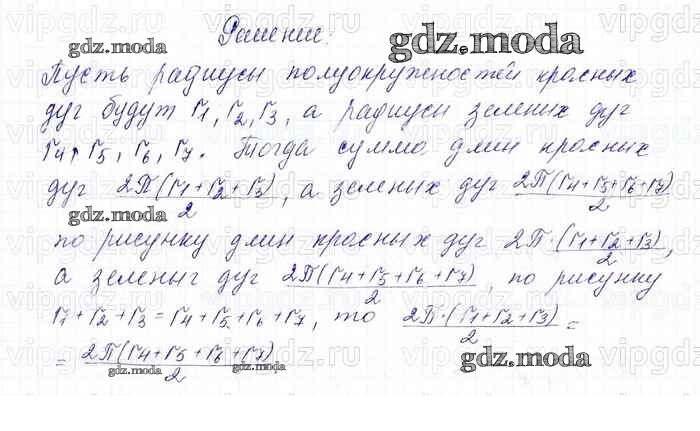 Решение:
Пусть радиусы полуокружностей красных
дуг будут r1, r2, r3, а радиусы зеленых дуг
r4, r5, r6, r7. Тогда сумма длин красных
дуг 2П(r1+r2+r3)/2, а зеленых дуг 2П(r4+r5+r6+r7)/2
по рисунку длин красных дуг 2П·(r1+r2+r3)/2,
а зеленых дуг 2П(r4+r5+r6+r7)/2, по рисунку
r1+r2+r3=r4+r5+r6+r7, то 2П·(r1+r2+r3)/2 =
= 2П(r4+r5+r6+r7)/2
gdz.moda
gdz.moda
gdz.moda
gdz.moda
gdz.moda
gdz.moda